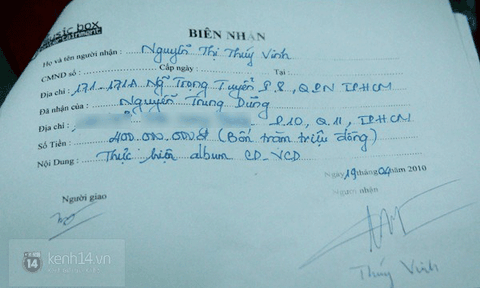 music box
entertainment
BIÊN NHẬN
Họ và tên người nhận : Nguyễn Thị Thúy Vinh
CMND số : Cấp ngày : Tại :
Địa chỉ : 171-171A Ngõ Trọng Tuyển P.8, Q.PN TPHCM
Đã nhận của : Nguyễn Trung Dũng
Địa chỉ : P.10, Q.11, TPHCM
Số Tiền : 400.000.000đ (Bốn trăm triệu đồng)
Nội Dung : Thực hiện album CD-VCD
Ngày 19 tháng 04 năm 2010
Người giao Người nhận
Thúy Vinh
kenh14.vn